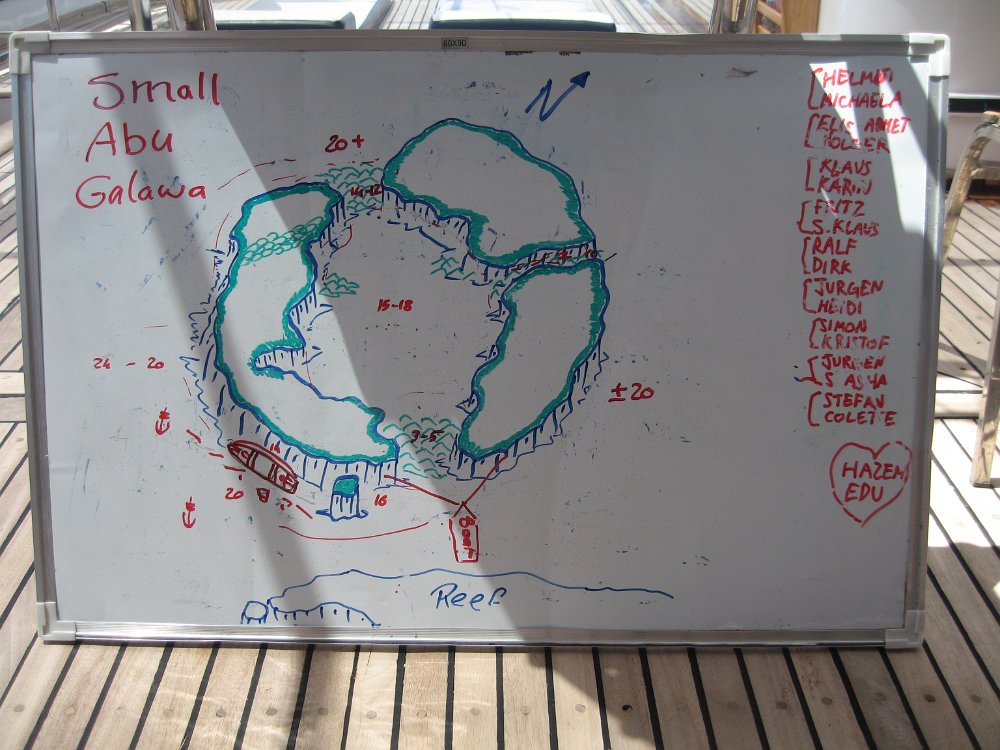 60X90
Small
Abu
Galawa
N
20+
14-12
15-18
24 - 20
±20
3-5
16
20
16
Boat
Reef
HELMUT
MICHAELA
ELIS AHMET
HOLGER
KLAUS
KARIN
FRITZ
S.KLAUS
RALF
DIRK
JURGEN
HEIDI
SIMON
KRISTOF
JURGEN
S ASHA
STEFAN
COLETTE
HAZEM
EDU